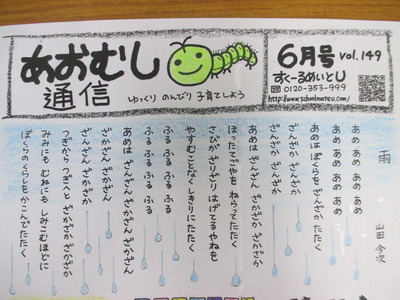 あおむし
通信
ゆっくり のんびり 子育てしよう
6月号 vol.149
すくーるめいとU
0120-353-999
http://www.schoolmateu.com/
雨
山田 今次
あめ あめ あめ あめ
あめ あめ あめ あめ
あめはぼくらを ざんざか たたく
ざんざか ざんざか
ざんざん ざかざか
あめは ざんざん ざかざか ざかざか
ほったてごやを ねらってたたく
さびが ざりざり はげてるやねを
やすむことなく しきりにたたく
ふる ふる ふる ふる
ふる ふる ふる ふる
あめは ざんざん ざかざん ざかざん
ざかざん ざかざん
ざんざん ざかざか
つぎから つぎへと ざかざか ざかざか
みみにも むねにも しみこむほどに
ぼくらのくらしを かこんでたたく